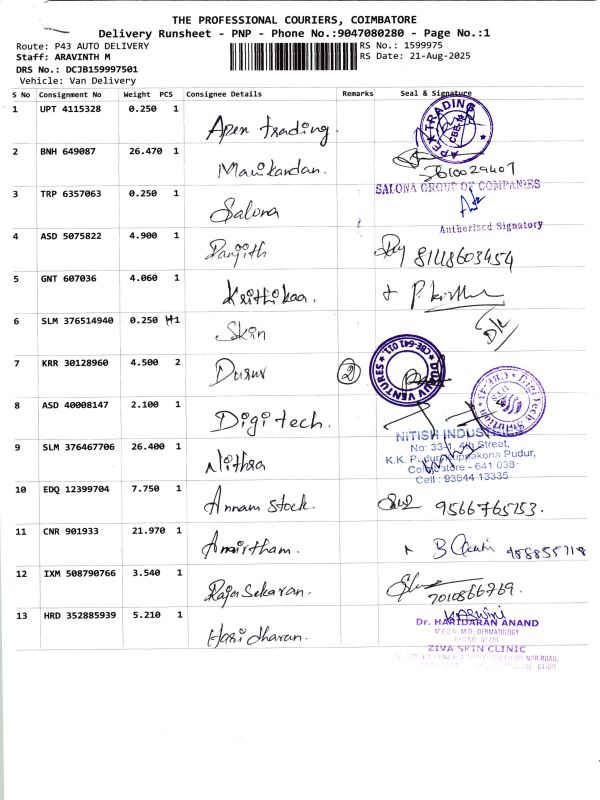 THE PROFESSIONAL COURIERS, COIMBATORE
Delivery Runsheet - PNP - Phone No.:9047080280 - Page No.:1
Route: P43 AUTO DELIVERY RS No.: 1599975
Staff: ARAVINTH M RS Date: 21-Aug-2025
DRS No.: DCJB159997501
Vehicle: Van Delivery
S No Consignment No Weight PCS Consignee Details Remarks Seal & Signature
1 UPT 4115328 0.250 1 Apex trading. APEX TRADING
2 BNH 649087 26.470 1 Manikandan.
3 TRP 6357063 0.250 1 Salona SALONA GROUP OF COMPANIES
Authorised Signatory
4 ASD 5075822 4.900 1 Ranjith
5 GNT 607036 4.060 1 Krithikaa.
6 SLM 376514940 0.250 1 Skin D/c
7 KRR 30128960 4.500 2 Duruv 2 DURUV VENTURES CBE-641 011.
8 ASD 40008147 2.100 1 Digitech. Digi Tech Solution
9 SLM 376467706 26.400 1 Nithra NITISH INDUS
No: 33-1, 4th Street,
K.K. Pudur, Kuppakona Pudur,
Coimbatore - 641 038
Cell : 93644 13335
10 EDQ 12399704 7.750 1 Annam Stock. 9566765253.
11 CNR 901933 21.970 1 Amirtham.
12 IXM 508790766 3.540 1 Rajasekaran. 7010866769.
13 HRD 352885939 5.210 1 Haridharan. Dr. HARIDARAN ANAND
M.B.B.S. M.D. DERMATOLOGY
ZIVA SKIN CLINIC
NSR ROAD,